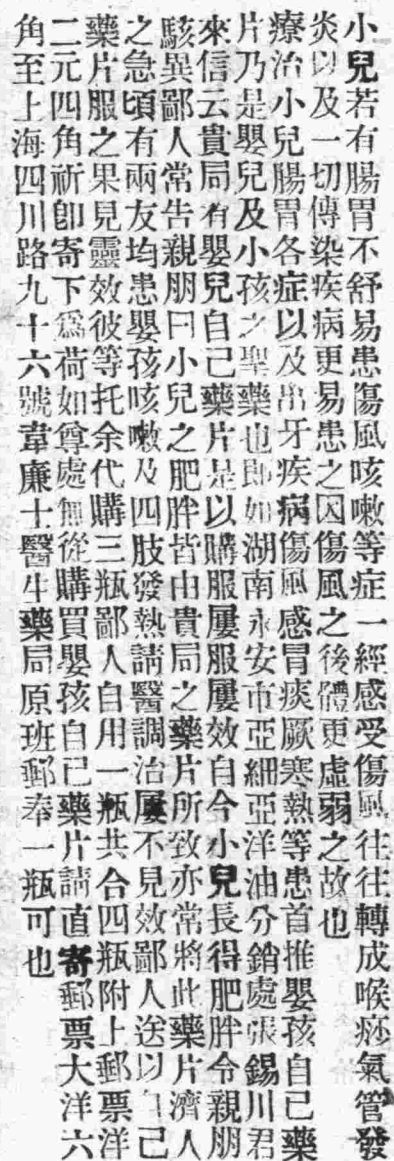 小兒若有腸胃不舒易患傷風咳嗽等症一經感受傷風往往轉成喉痧氣管發
炎以及一切傳染疾病更易患之因傷風之後體更虛弱之故也
療治小兒腸胃各症以及出牙疾病傷風感冒痰厥寒熱等患首推嬰孩自己藥
片乃是嬰兒及小孩之聖藥也即如湖南永安市亞細亞洋油分銷處張錫川君
來信云貴局有嬰兒自己藥片是以購服屢服屢效自今小兒長得肥胖令親朋
駭異鄙人常告親朋曰小兒之肥胖皆由貴局之藥片所致亦常將此藥片濟人
之急頃有兩友均患嬰孩咳嗽及四肢發熱請醫調治屢不見效鄙人送以自己
藥片服之果見靈效彼等托余代購三瓶鄙人自用一瓶共合四瓶附上郵票洋
二元四角祈卽寄下爲荷如尊處無從購買嬰孩自己藥片請直寄郵票大洋六
角至上海四川路九十六號韋廉士醫生藥局原班郵奉一瓶可也